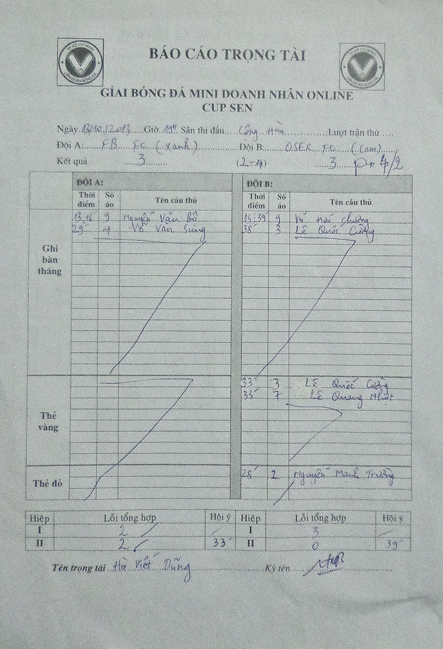 BÁO CÁO TRỌNG TÀI
GIẢI BÓNG ĐÁ MINI DOANH NHÂN ONLINE
CUP SEN
Ngày 13/10/2013 Giờ 19h Sân thi đấu Cộng Hòa Lượt trận thứ
Đội A: FB FC (xanh) Đội B: OSER FC (cam)
Kết quả 3 (2-4) 3 P* 4/2
ĐỘI A: ĐỘI B:
Thời điểm Số áo Tên cầu thủ Thời điểm Số áo Tên cầu thủ
Ghi bàn thắng
13,16 9 Nguyễn Văn Bô 15,39 9 Vũ Chương
29 4 Võ Văn Sung 38 3 Lê Quốc Cường
Thẻ vàng
33 3 Lê Quốc Cường
33 7 Lê Quang Nhật
Thẻ đỏ
28 2 Nguyễn Mạnh Trường
Hiệp Lỗi tổng hợp Hội ý Hiệp Lỗi tổng hợp Hội ý
I 2 I 3
II 2 33 II 0 39
Tên trọng tài Hà Viết Dũng Ký tên